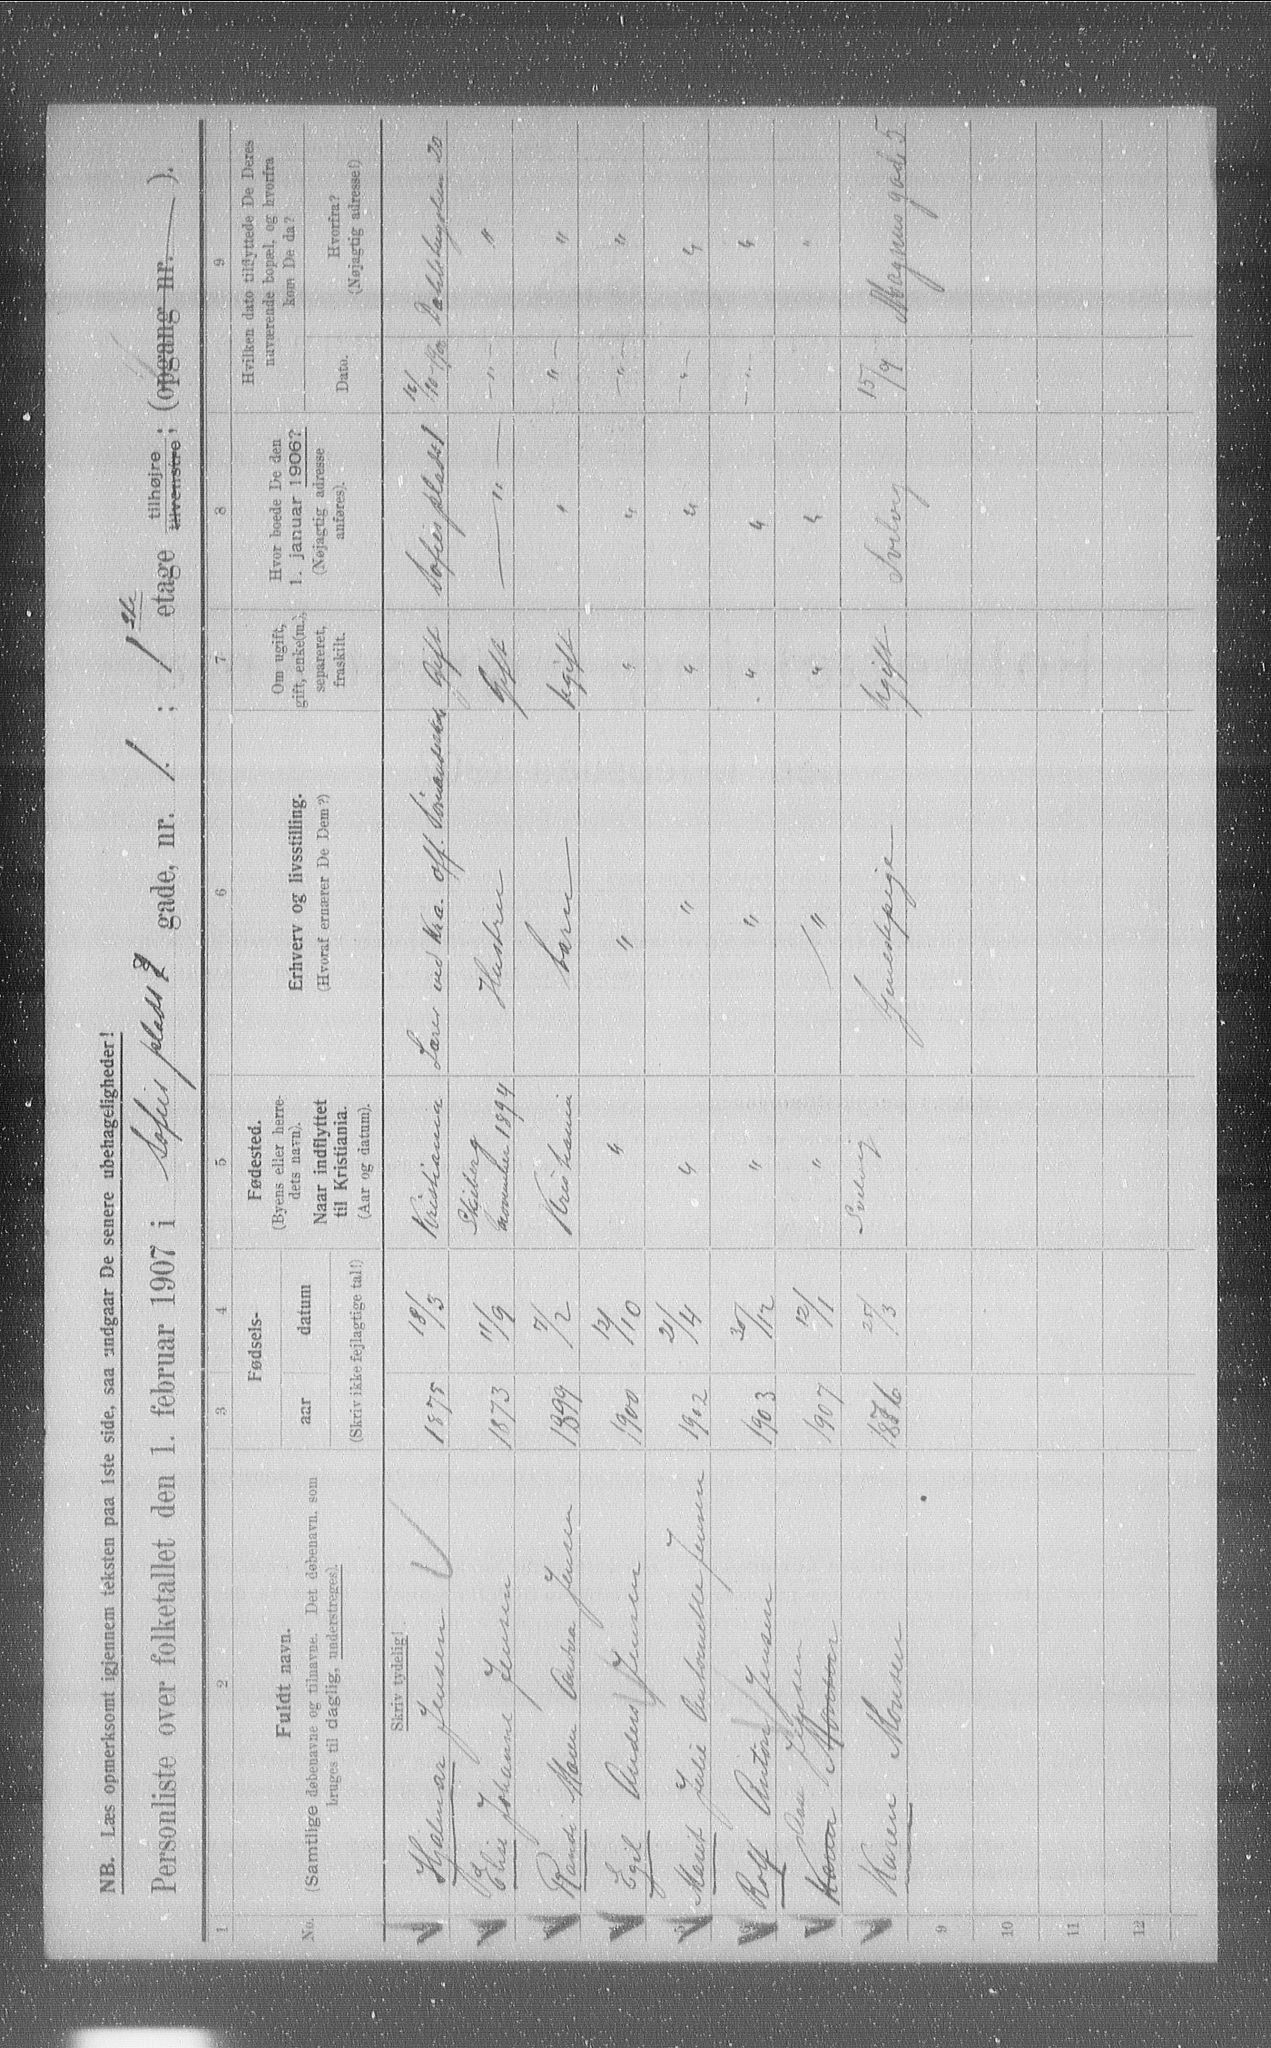 NB. Læs opmerksomt igjennem teksten paa 1ste side, saa undgaar De senere ubehageligheder!
Personliste over folketallet den 1. februar 1907 i Sofies plads gade, nr. 1. ; 1 ste etage tilhøjre tilvenstre; (opgang nr. — ).
1 2 3 4 5 6 7 8 9
No.
Fuldt navn.
(Samtlige døbenavne og tilnavne. Det døbenavn, som
bruges til daglig, understreges).
Fødsels-
aar datum
(Skriv ikke fejlagtige tal!)
Fødested.
(Byens eller herre-
dets navn).
Naar indflyttet
til Kristiania.
(Aar og datum).
Erhverv og livsstilling.
(Hvoraf ernærer De Dem?)
Om ugift,
gift, enke(m.),
separeret,
fraskilt.
Hvor boede De den
1. januar 1906?
(Nøjagtig adresse
anføres).
Hvilken dato tilflyttede De Deres
naværende bopæl, og hvorfra
kom De da?
Dato.
Hvorfra?
(Nøjagtig adresse!)
Skriv tydelig!
Hjalmar Jensen 1875 18/3 Kristiania Lærer ved Kra. off. Gift Sofies plads 1 20
Elise Johanne Jensen 1873 11/9 Skiberg november 1894 Hustru Gift — " — — " — "
Randi Maren Andrea Jensen 1899 7/2 Kristiania barn Ugift " " — "
Egil Anders Jensen 1900 12/10 " " " " — " — "
Marit Julie Antonette Jensen 1902 21/4 " " " " — " — "
Rolf Anton Jensen 1903 30/12 " " " " — " — "
Jensen
Karen 1907 12/1 " " " " "
Karen Monsen 1876 25/3 Svelvig Tjenestepige Ugift Svelvig 15/9 Magnus gade 5
9
10
11
12